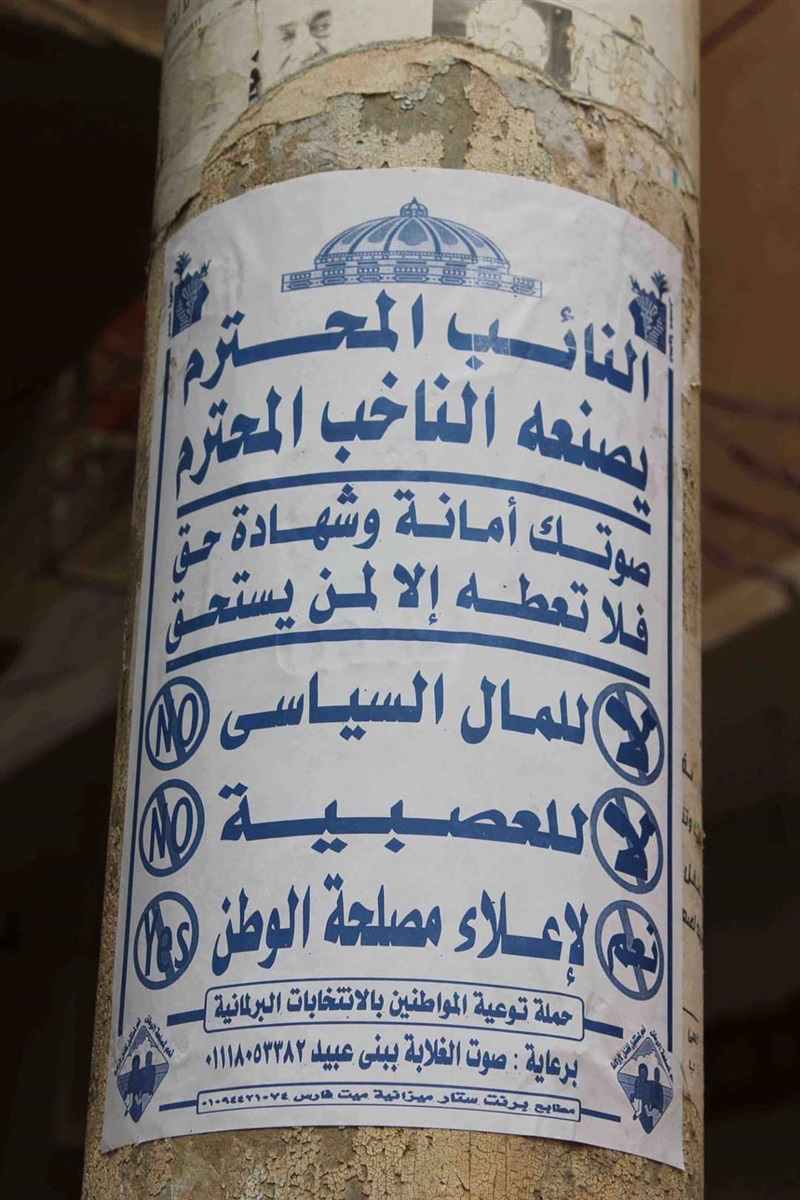 النائب المحترم
يصنعه الناخب المحترم
صوتك أمانة وشهادة حق
فلا تعطه إلا لمن يستحق
لا للمال السياسى NO
لا للعصبية NO
نعم لإعلاء مصلحة الوطن Yes
حملة توعية المواطنين بالانتخابات البرلمانية
برعاية : صوت الغلابة ببنى عبيد ٠١١١٨٠٥٣٣٨٢
مطابع برنت ستار ميزانية ميت فارس ٠١٠٩٤٤٢١٠٧٤